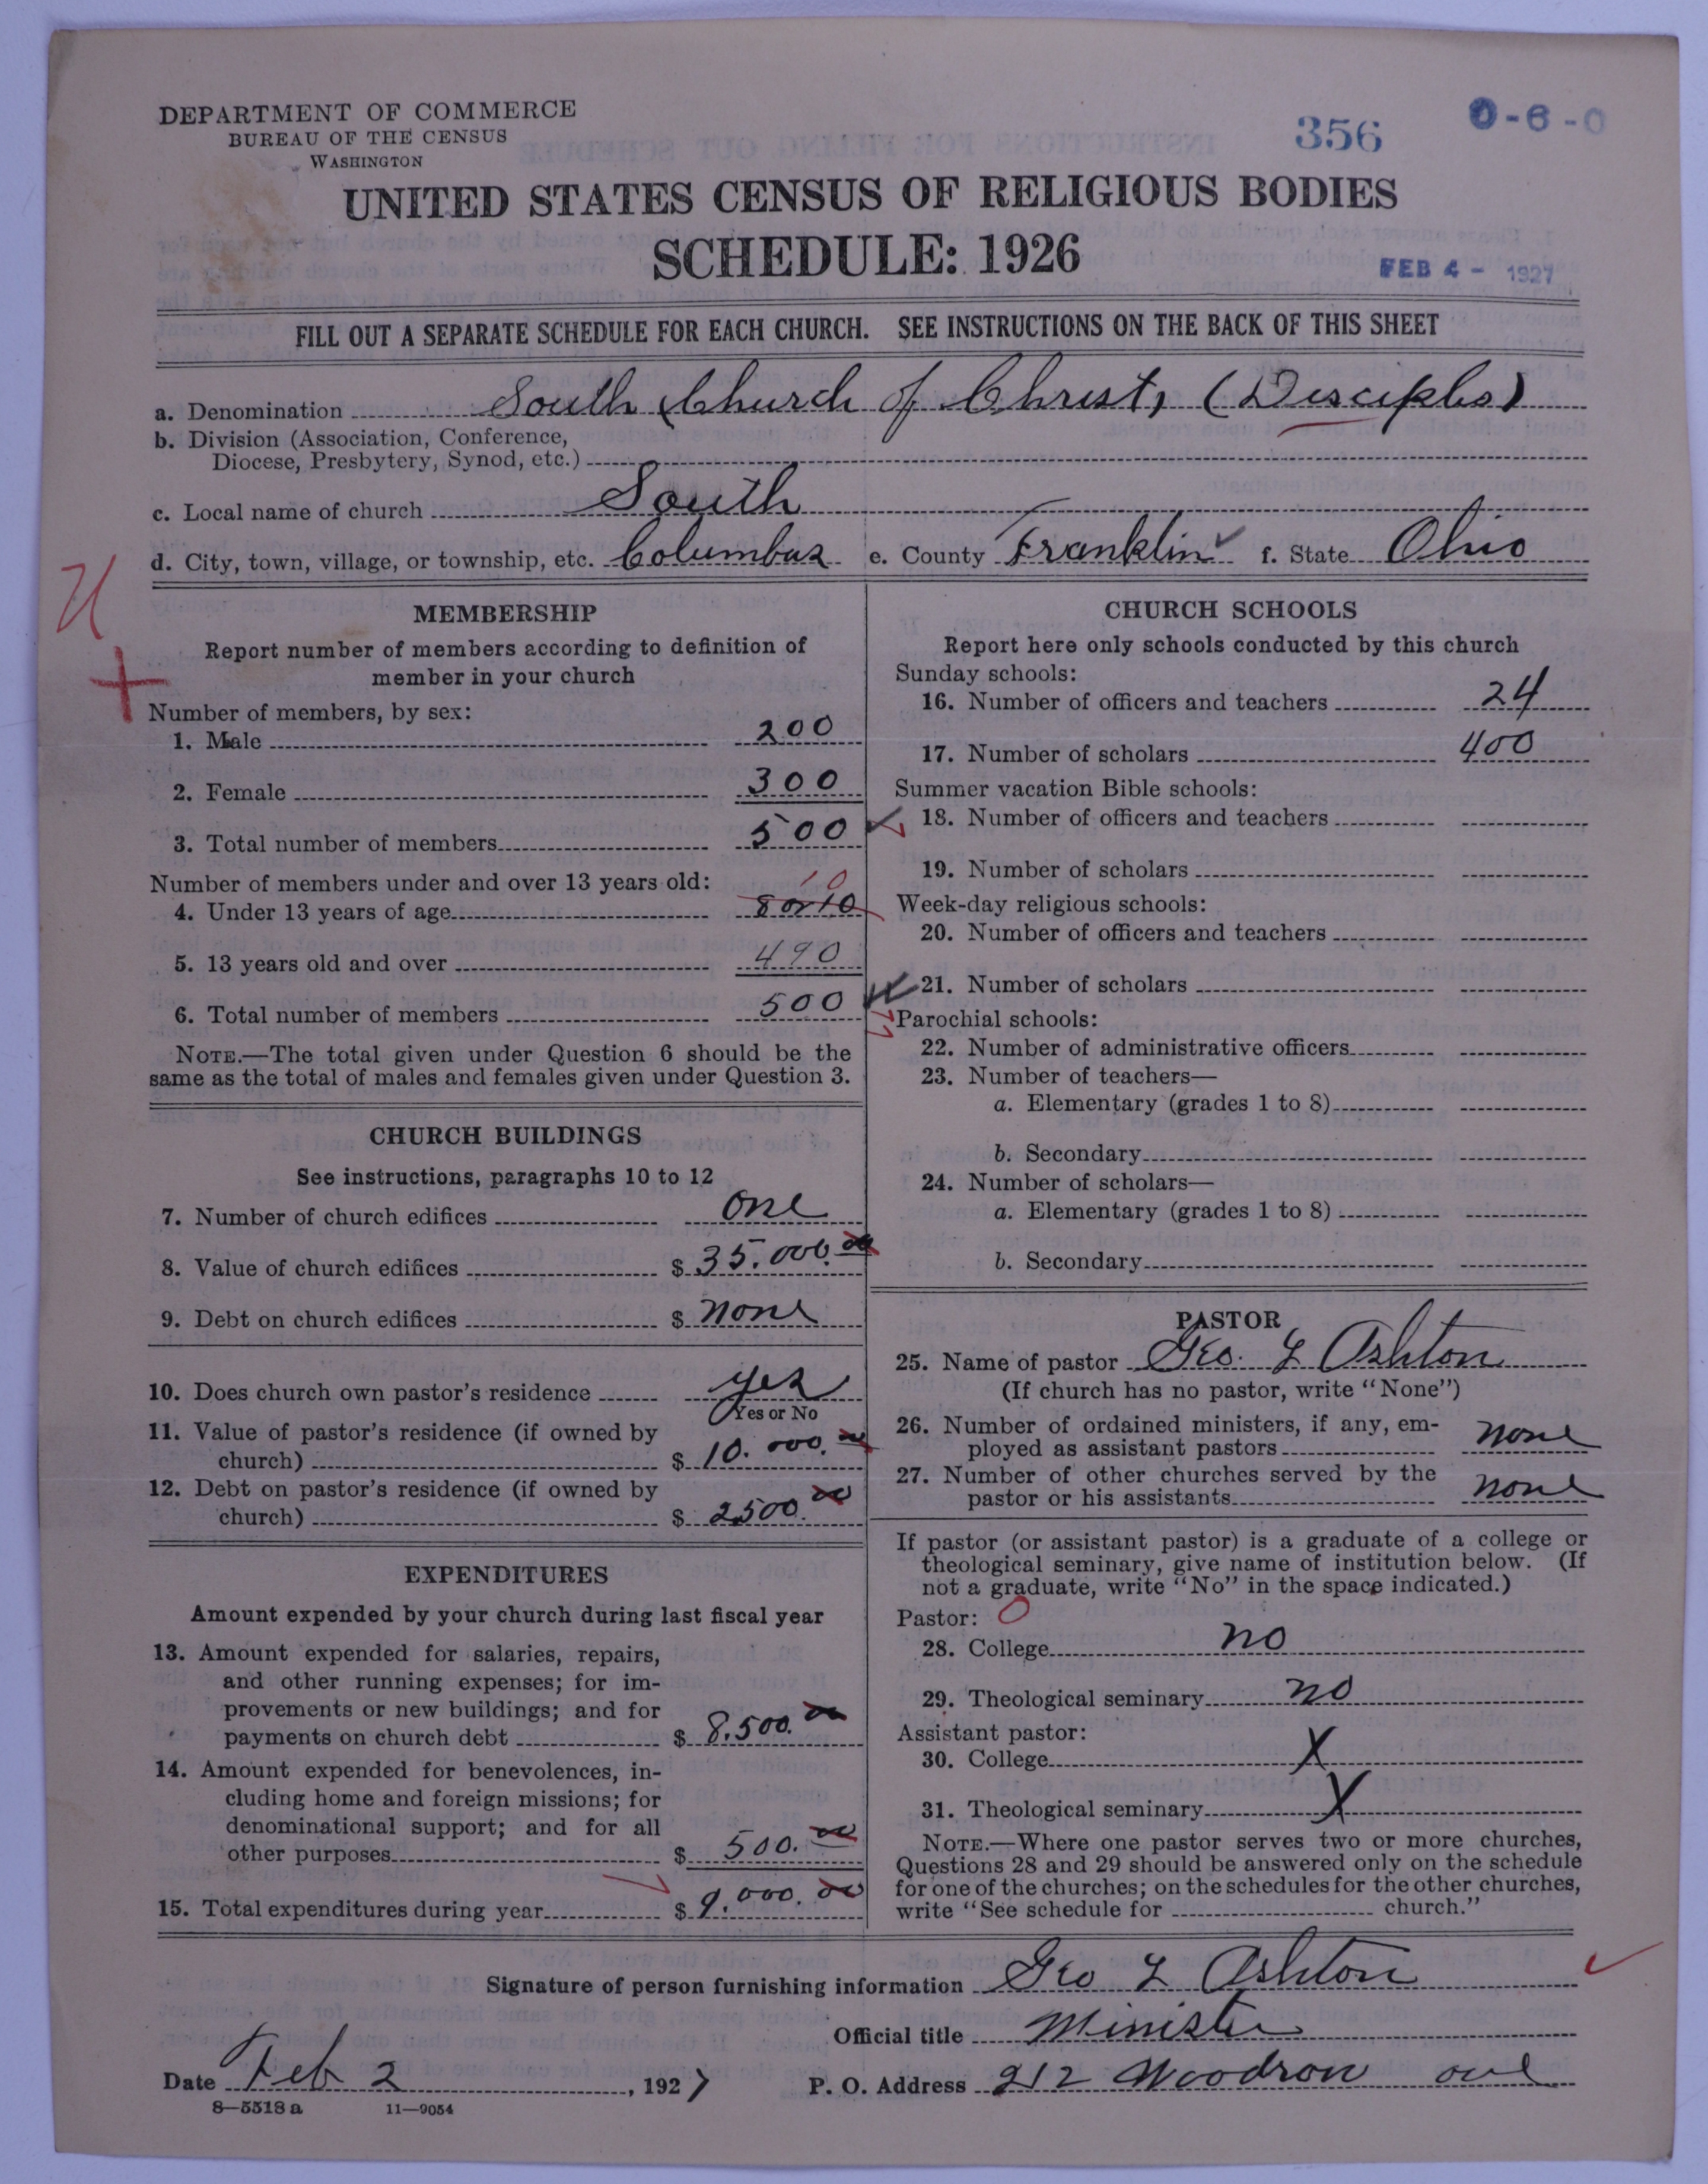 DEPARTMENT OF COMMERCE
BUREAU OF THE CENSUS
WASHINGTON
356
0-6-0
UNITED STATES CENSUS OF RELIGIOUS BODIES
SCHEDULE: 1926
FEB 4 - 1927
FILL OUT A SEPARATE SCHEDULE FOR EACH CHURCH. SEE INSTRUCTIONS ON THE BACK OF THIS SHEET
a. Denomination South Church of Christ, (Disciples)
b. Division (Association, Conference,
Diocese, Presbytery, Synod, etc.)
c. Local name of church South
d. City, town, village, or township, etc. Columbus e. County Franklin f. State Ohio
MEMBERSHIP
Report number of members according to definition of
member in your church
Number of members, by sex:
1. Male 200
2. Female 300
3. Total number of members 500
Number of members under and over 13 years old:
10
4. Under 13 years of age 8 or 10
5. 13 years old and over 490
6. Total number of members 500
NOTE.—The total given under Question 6 should be the
same as the total of males and females given under Question 3.
CHURCH BUILDINGS
See instructions, paragraphs 10 to 12
7. Number of church edifices one
8. Value of church edifices $ 35.000.00
9. Debt on church edifices $ none
10. Does church own pastor's residence yes
Yes or No
11. Value of pastor's residence (if owned by
church) $ 10.000.00
12. Debt on pastor's residence (if owned by
church) $ 2500.00
EXPENDITURES
Amount expended by your church during last fiscal year
13. Amount expended for salaries, repairs,
and other running expenses; for im-
provements or new buildings; and for
payments on church debt $ 8.500.00
14. Amount expended for benevolences, in-
cluding home and foreign missions; for
denominational support; and for all
other purposes $ 500.00
15. Total expenditures during year $ 9.000.00
CHURCH SCHOOLS
Report here only schools conducted by this church
Sunday schools:
16. Number of officers and teachers 24
17. Number of scholars 400
Summer vacation Bible schools:
18. Number of officers and teachers
19. Number of scholars
Week-day religious schools:
20. Number of officers and teachers
21. Number of scholars
Parochial schools:
22. Number of administrative officers
23. Number of teachers—
a. Elementary (grades 1 to 8)
b. Secondary
24. Number of scholars—
a. Elementary (grades 1 to 8)
b. Secondary
PASTOR
25. Name of pastor Geo. L Ashton
(If church has no pastor, write "None")
26. Number of ordained ministers, if any, em-
ployed as assistant pastors none
27. Number of other churches served by the
pastor or his assistants none
If pastor (or assistant pastor) is a graduate of a college or
theological seminary, give name of institution below. (If
not a graduate, write "No" in the space indicated.)
Pastor: 0
28. College no
29. Theological seminary no
Assistant pastor:
30. College X
31. Theological seminary X
NOTE.—Where one pastor serves two or more churches,
Questions 28 and 29 should be answered only on the schedule
for one of the churches; on the schedules for the other churches,
write "See schedule for church."
Signature of person furnishing information Geo L Ashton
Official title Minister
Date Feb 2, 1927 P. O. Address 212 Woodrow ave
8—5518 a 11—9054